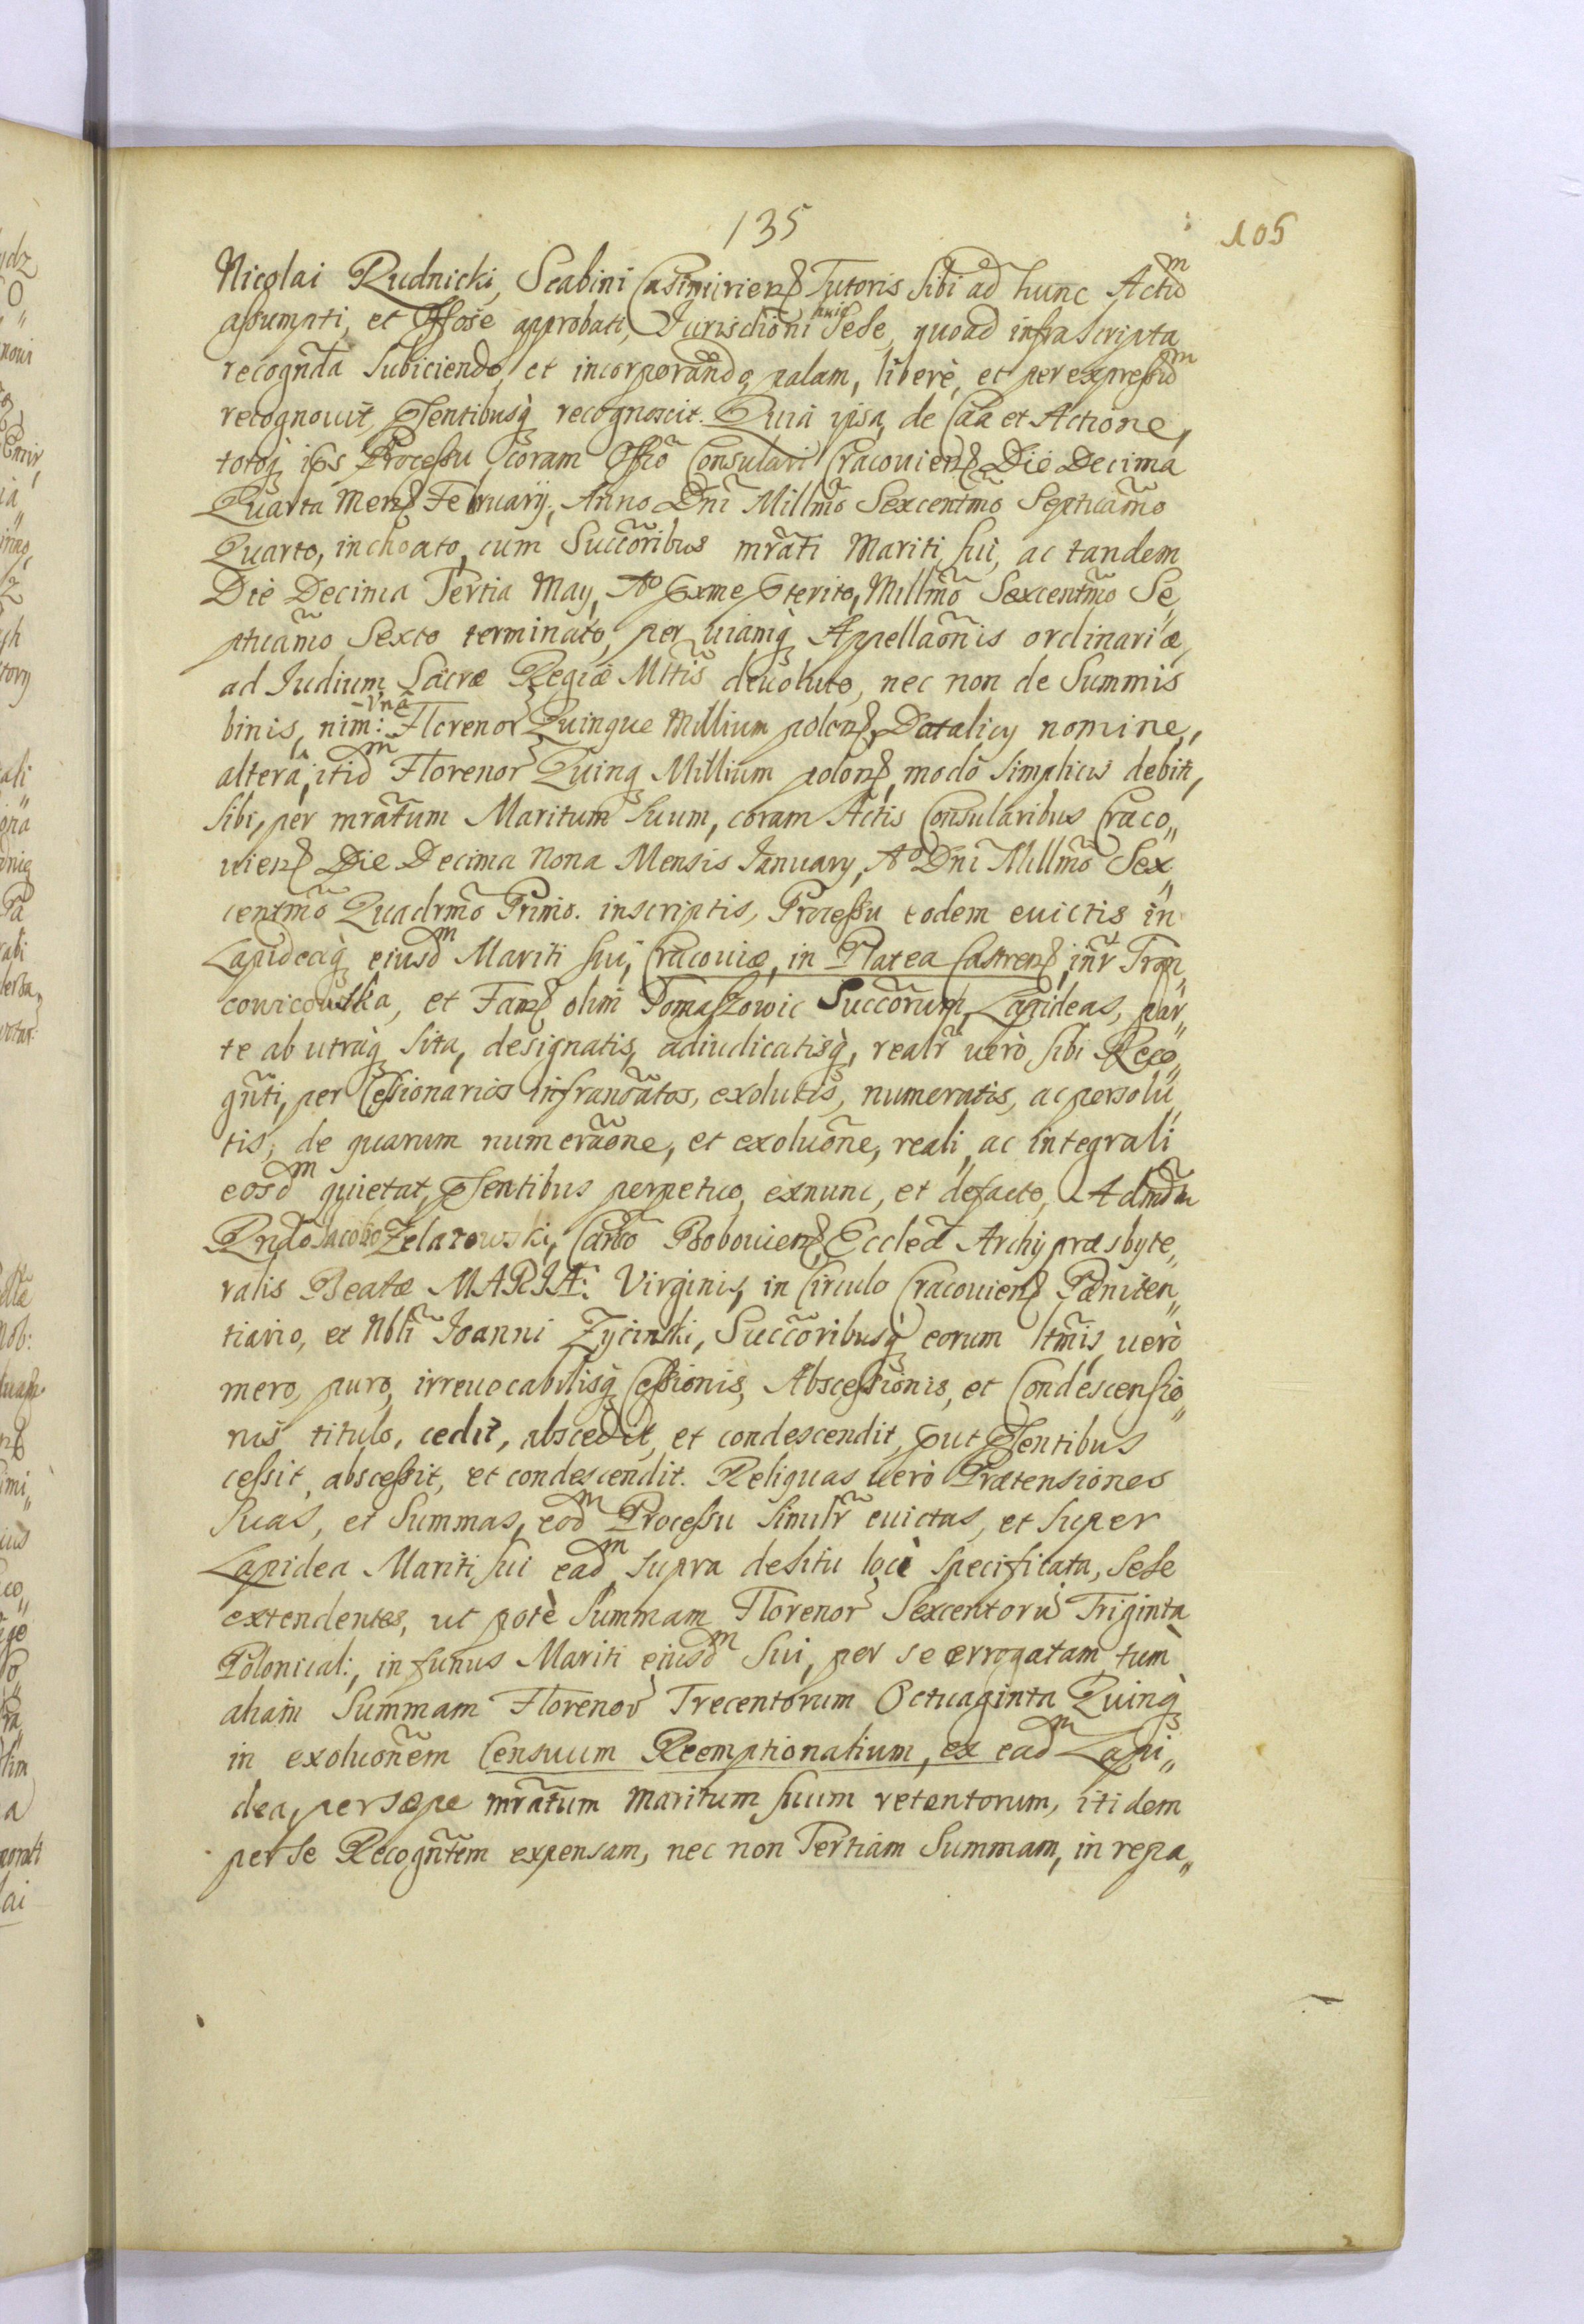 135
105
Nicolai Rudnicki, Scabini Casimirien Tutoris sibi ad hunc Actū
assumpti, et Offose approbati, Jurisdictioni huic Sese, quoad infrascripta
recognñda subiciendo, et incorporando, palam, liberè, et per expressū
recognouit, Psentibusq recognoscit. Quia ipsa, de Cãa et Actione,
totoq ips Processu coram Offõ Consulari Cracouien Die Decima
Quarta Mens February, Anno Dni Millmõ Sexcentmõ Septuãmo
Quarto, inchoato, cum Succõribus mrãti Mariti sui, ac tandem
Die Decima Tertia May, Aõ pxme pterito, Millmõ Sexcentmõ Se„
ptuãmo Sexto terminato, per uiamq Appellaõnis ordinariæ
ad Iudium Sacræ Regiæ Mtis deuoluto, nec non de Summis
binis, nim: -Vna Florenor Quinque Millium polon, Dotalicy nomine,
alterâ, itid m Florenor Quinq Millium polon, modò simplicis debiti,
sibi, per mrãtum Maritum suum, coram Actis Consularibus Craco„
uien Die Decima Nona Mensis January, Aõ Dni Millmõ Sex„
centmõ Quadrmõ Primo. inscriptis, Processu eodem euictis in
Lapideaq eiusd m Mariti sui, Cracouiæ, in Platea Castren, intr Tron„
cowicowska, et Fam olim Tomaszowic Succõrum, Lapideas, par„
te ab utraq sita, designatis, adiudicatisq, realr uerò sibi Reco„
gñti, per Cessionarios infranõatos, exolutis, numeratis, ac persolu„
tis; de quarum numeraõne, et exoluõne, reali, ac integrali
eosd m quietat, Psentibus perpetuo, exnunc, et defacto, Admdm
Rndo Jacobo Zelazowski, Cantõ Bobouien, Ecclẽa Archypræsbyte„
ralis Beatæ MARIÆ: Virginis, in Circulo Cracouien Pæniten„
tiario, et Nbli Joanni Zycinski, Succõribusq eorum ltmis, uerò
mero, puro, irreuocabilisq Cessionis, Abscessionis, et Condescensio„
nis titulo, cedit, abscedit, et condescendit, put Psentibus
cessit, abscessit, et condescendit. Reliquas uerò Prætensiones
suas, et Summas, eod m Processu simlr euictas, et super
Lapidea Mariti sui ead m supra de situ loci specificata, sese
extendentes, ut potè Summam Florenor Sexcentorū Triginta
Polonical:, in funus Mariti eiusd m sui, per se errogatam, tum
aliam Summam Florenor Trecentorum Octuaginta Quinq
in exoluõnem Censuum Reemptionalium, ex ead m Lapi„
dea, per sæpe mrãtum Maritum suum retentorum, itidem
per se Recogñtem expensam, nec non Tertiam Summam, in repa„